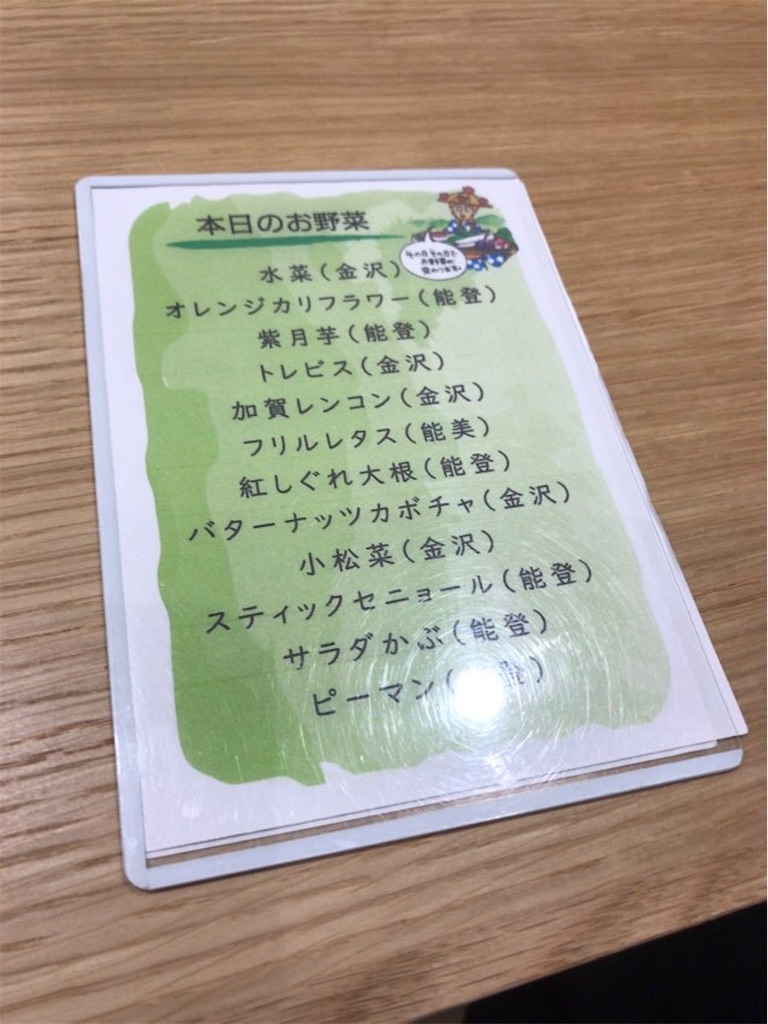 本日のお野菜
その日その日で
お野菜は
変わります。
水菜(金沢)
オレンジカリフラワー(能登)
紫月芋(能登)
トレビス(金沢)
加賀レンコン(金沢)
フリルレタス(能美)
紅しぐれ大根(能登)
バターナッツカボチャ(金沢)
小松菜(金沢)
スティックセニョール(能登)
サラダかぶ(能登)
ピーマン(登)